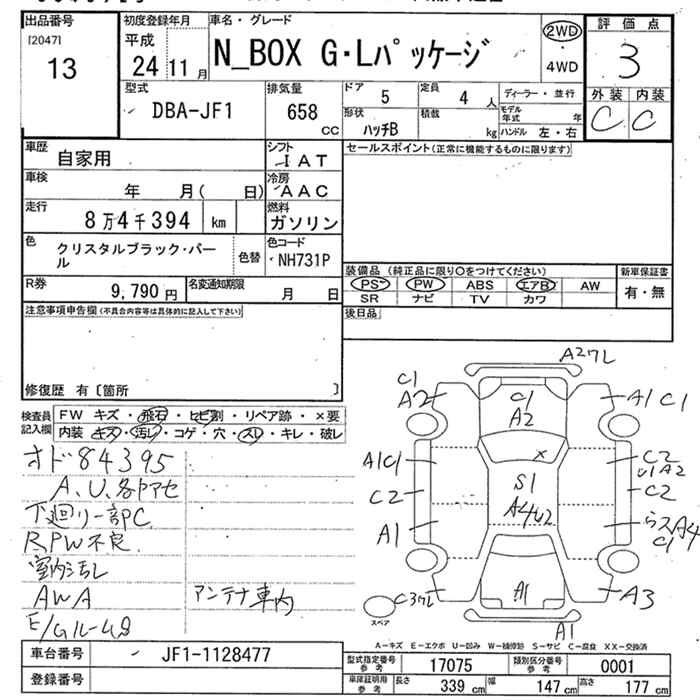 出品番号 初度登録年月 車名・グレード 評価点
[2047] 平成
13 24 11月 N_BOX G・Lパッケージ 2WD 3
4WD
型式 排気量 ドア 5 定員 4人 ディーラー・並行 外装 内装
DBA-JF1 658 CC 形状 ハッチB 積載 kg モデル年式 年 C C
ハンドル 左・右
車歴 自家用 シフト IAT セールスポイント(正常に機能するものに限ります)
車検 年 月( 日) 冷房 AAC
走行 8万4千394 km 燃料 ガソリン
色 クリスタルブラック・パール 色替 色コード NH731P
装備品(純正品に限り○をつけてください) 新車保証書
R券 9,790円 名変通知期限 月 日 PS PW ABS エアB AW 有・無
SR ナビ TV カワ
注意事項申告欄(不具合内容等は具体的に記入して下さい) 後日品
修復歴 有〔箇所 〕
検査員記入欄 FW キズ・飛石・ヒビ割・リペア跡・×要
内装・キズ・汚レ・コゲ・穴・スレ・キレ・破レ
オド84395
A、U、各ドアセ
下廻リ一部PC
RPW不良
室内汚レ
AWA アンテナ車内
A2ワレ
C1 A2 C1 A2 A1 C1
A1C1 × C2
C2 S1 C2
A1 A4U2 A4
C1
C3ワレ A1 A3
スペア A1
A-キズ E-エクボ U-凹み W-補修跡 S-サビ C-腐食 XX-交換済
車台番号 JF1-1128477 型式指定番号 参考 17075 類別区分番号 参考 0001
登録番号 車庫証明用 参考 長さ 339 cm 幅 147 cm 高さ 177 cm